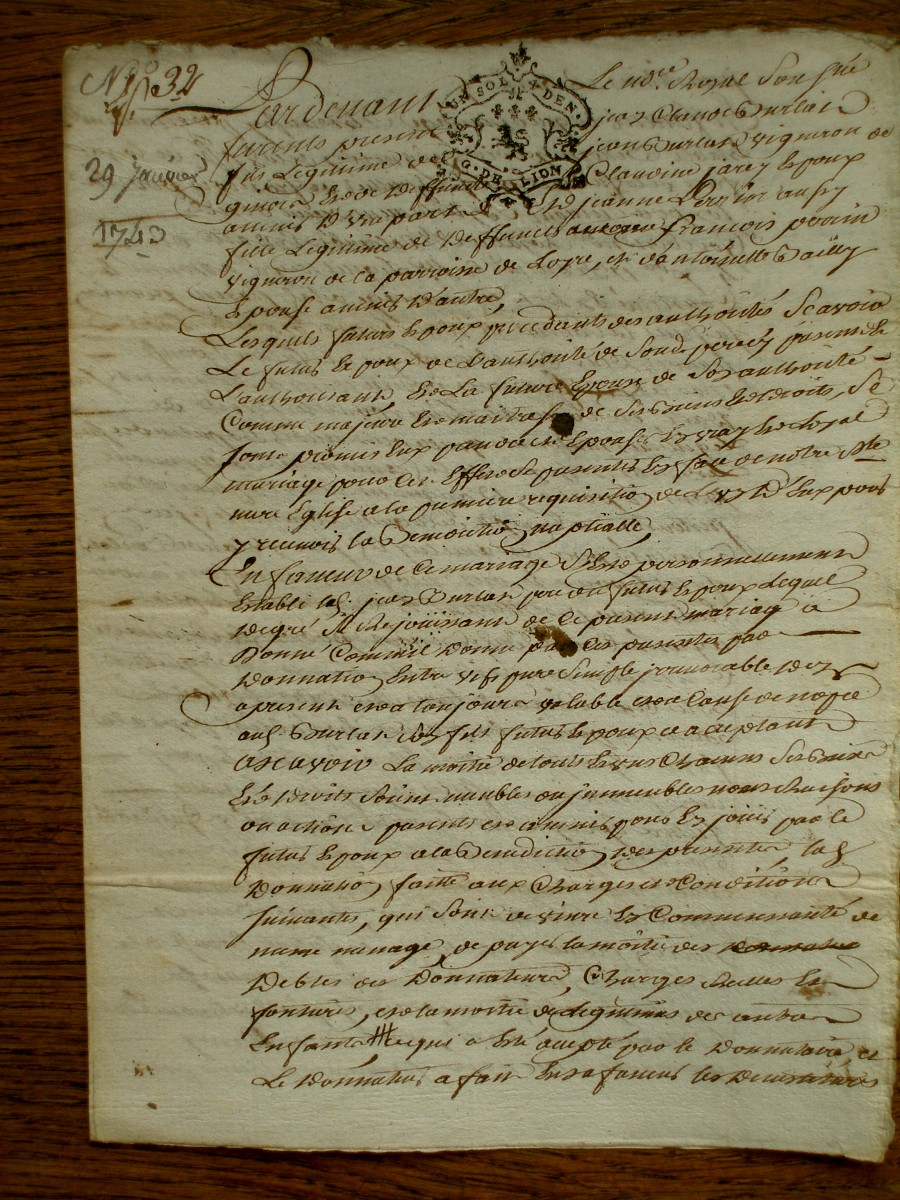 N.º 32
29 janvier
1743
UN SOL 4 DEN
G. DE LION
Pardevant Le no.re Royal Sousigné
furents present jean Claude Burlat
fils Legitime de jean Burlat vigneron de
et de deffunte Claudine jarey Epoux
amies D'un part, Et jeanne Perrin aussy
fille Legitime de deffunct francois perrin
vigneron de la parroisse de Loyre, et d'antoinette Bailly
Epouse amies D'autre,
Lesquels futurs Epoux procedants des authorités Scavoir
Le futur Epoux de L'authorité de Sond. pere cy present et
L'authorisant, Et La future Epouse de Son authorité
Comme majeure et maitresse de Ses Biens et droits, Se
Sont promis Eux prendre et Epouser En vray et Loyal
mariage pour cet Effet Se presenter En face de notre S.te
mere Eglise a la premiere requisition de L'un D'Eux pour
y recevoir la Benediction nuptialle,
En faveur de Ce mariage S'est personnellement
Etabli led. jean Burlat pere du futur Epoux Lequel
de gré Se Rejouissant de Ce present mariage a
Donné Comme il donne par Ces presentes par
Donnation Entre vifs pure Simple irrevocable Des
apresent et a toujours valable et a Cause de nopce
aud. Burlat Son fils futur Epoux ce acceptant
ascavoir La moitié de touts et uns Chacuns Ses Biens
Et droits Soient meubles ou immeubles noms Raisons
ou actions presents et avenir pour En jouir par le
futur Epoux a la Benediction Des presentes, lad.
Donnation faitte aux Charges et Conditions
Suivantes, qui Sont de vivre En Communauté de
meme menage, de payer la moitié des
Debtes du Donnateur, Charges Réelles Et
foncieres, et la moitié des legitimes des autres
Enfants ce qui a Eté accepté par le Donnataire, et
Le Donnateur a fait En sa faveur les